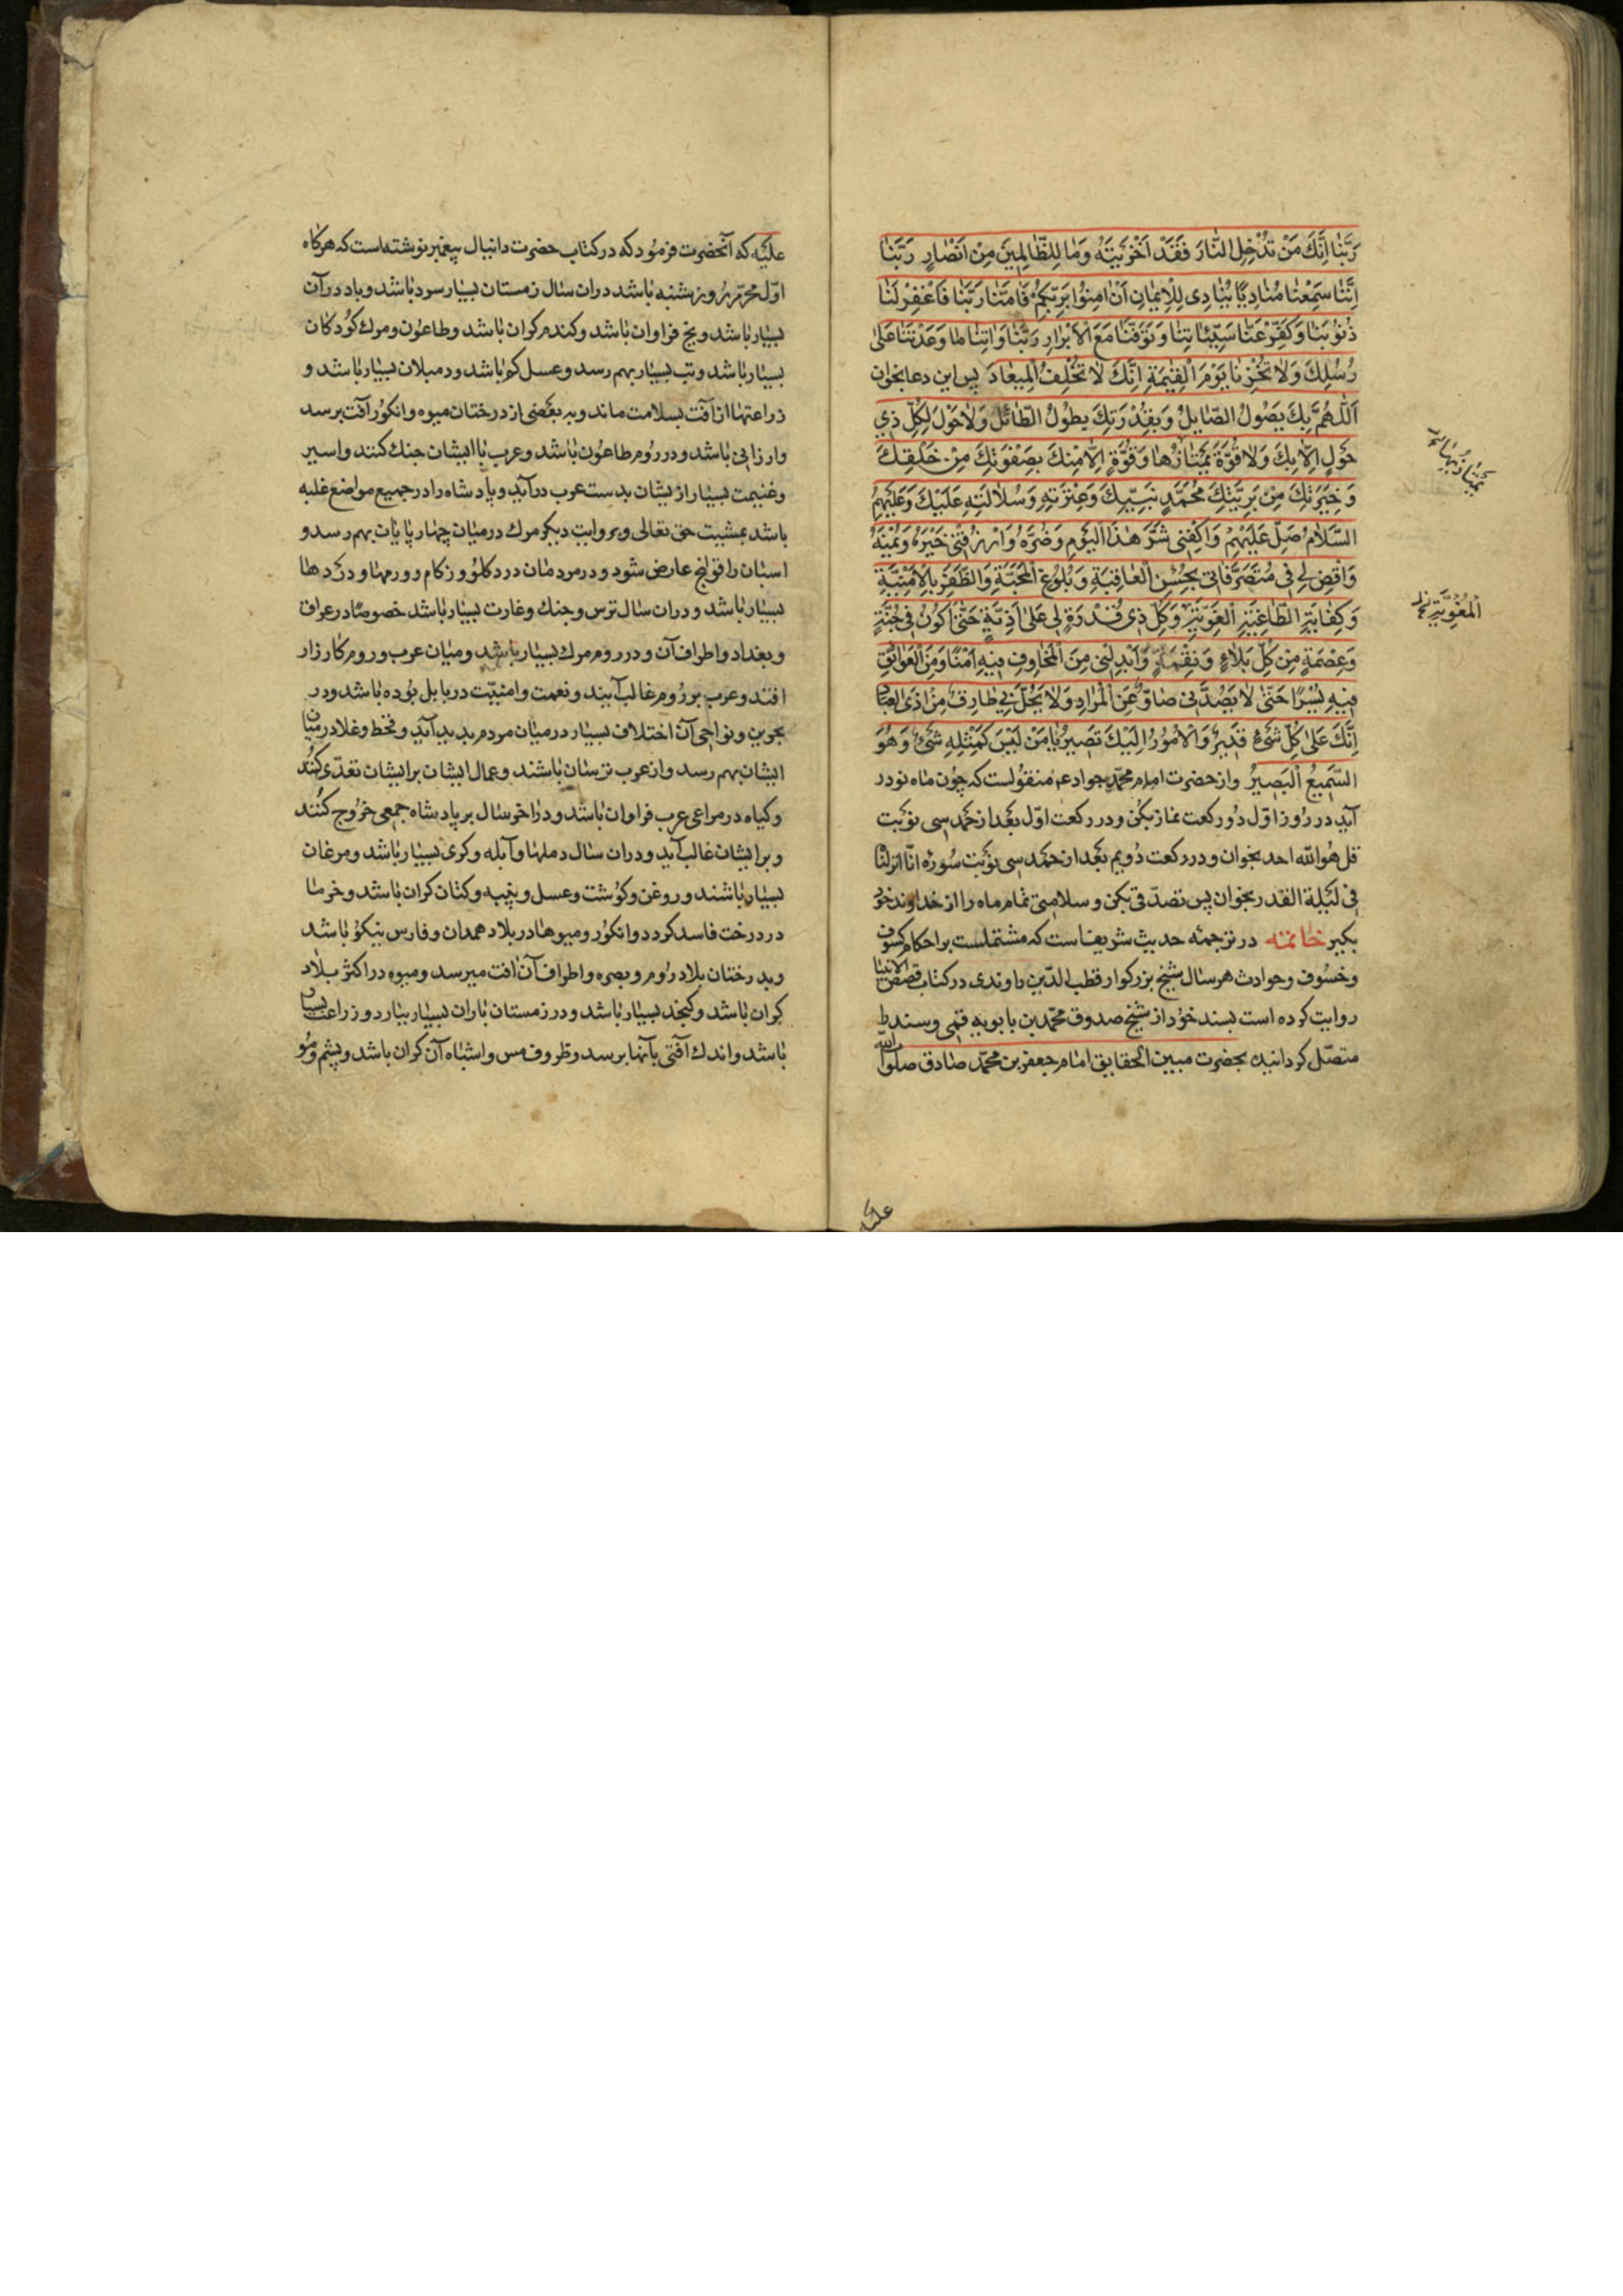 رَبَّنَا اِنَّكَ مَنْ تُدْخِلِ النَّارَ فَقَدْ اَخْزَيْتَهُ وَمَا لِلظَّالِمِينَ مِنْ اَنْصَارٍ رَبَّنَا
اِنَّنَا سَمِعْنَا مُنَادِيًا يُنَادِى لِلْاِيمَانِ اَنْ اٰمِنُوا بِرَبِّكُمْ فَاٰمَنَّا رَبَّنَا فَاغْفِرْ لَنَا
ذُنُوبَنَا وَكَفِّرْ عَنَّا سَيِّئَاتِنَا وَتَوَفَّنَا مَعَ الْاَبْرَارِ رَبَّنَا وَاٰتِنَا مَا وَعَدْتَنَا عَلٰى
رُسُلِكَ وَلَا تُخْزِنَا يَوْمَ الْقِيٰمَةِ اِنَّكَ لَا تُخْلِفُ الْمِيعَادَ پس این دعا بخوان
اَللّٰهُمَّ بِكَ يَصُولُ الصَّايِلُ وَبِقُدْرَتِكَ يَطُولُ الطَّائِلُ وَلَا حَوْلَ لِكُلِّ ذِي
حَوْلٍ اِلَّا بِكَ وَلَا قُوَّةَ يَمْتَازُهَا ذُو قُوَّةٍ اِلَّا مِنْكَ بِصَفْوَتِكَ مِنْ خَلْقِكَ
وَخِيَرَتِكَ مِنْ بَرِيَّتِكَ مُحَمَّدٍ نَبِيِّكَ وَعِتْرَتِهِ وَسُلَالَتِهِ عَلَيْكَ وَعَلَيْهِمُ
السَّلَامُ صَلِّ عَلَيْهِمْ وَاكْفِنِى شَرَّ هٰذَا الْيَوْمِ وَضَرَّهُ وَارْزُقْنِى خَيْرَهُ وَيُمْنَهُ
وَاقْضِ لِى فِى مُتَصَرَّفَاتِى بِحُسْنِ الْعَافِيَةِ وَبُلُوغِ الْمَحَبَّةِ وَالظَّفَرِ بِالْاُمْنِيَّةِ
وَكِفَايَةِ الطَّاغِيَةِ الْغَوِيَّةِ وَكُلِّ ذِى قُدْرَةٍ لِى عَلٰى اَذِيَّةٍ حَتّٰى اَكُونَ فِى جُنَّةٍ
وَعِصْمَةٍ مِنْ كُلِّ بَلَاءٍ وَنِقْمَةٍ وَاَبْدِلْنِى مِنَ الْمَخَاوِفِ فِيهِ اَمْنًا وَمِنَ الْعَوَائِقِ
فِيهِ يُسْرًا حَتّٰى لَا يَصُدَّنِى صَادٌّ عَنِ الْمُرَادِ وَلَا يَحُلَّ بِى طَارِقٌ مِنْ اَذَى الْعِبَادِ
اِنَّكَ عَلٰى كُلِّ شَىْءٍ قَدِيرٌ وَالْاُمُورُ اِلَيْكَ تَصِيرُ يَا مَنْ لَيْسَ كَمِثْلِهِ شَىْءٌ وَهُوَ
السَّمِيعُ الْبَصِيرُ واز حضرت امام محمّد جواد ع منقولست که چون ماه نو در
آید در روز اوّل دو رکعت نماز بکن و در رکعت اوّل بعد از حمد سی نوبت
قل هو اللّه احد بخوان و در رکعت دویم بعد از حمد سی نوبت سورهٔ انّا انزلنا
فی لیلة القدر بخوان پس تصدّقی بکن و سلامتی تمام ماه را از خداوند خود
بکیر خاتمه در ترجمهٔ حدیث شریفاست که مشتملست بر احکام کسوف
و خسوف و حوادث هر سال شیخ بزرکوار قطب الدّین راوندی در کتاب قصص الانبیا
روایت کرده است بسند خود از شیخ صدوق محمّد بن بابویه قمی و سند را
متصّل کردانیده بحضرت مبین الحقایق امام جعفر بن محمّد صادق صلوات اللّه
الْمُغْوِيَةِ خ
علیه
علیه که آنحضرت فرمود که در کتاب حضرت دانیال پیغمبر نوشته است که هرکاه
اوّل محرّم روز شنبه باشد در ان سال زمستان بسیار سرد باشد و باد در آن
بسیار باشد و یخ فراوان باشد و کندم کران باشد و طاعون و مرك کودکان
بسیار باشد و تب بسیار بهم رسد و عسل کم باشد و دمبلان بسیار باشد و
زراعتها از آفت بسلامت ماند و به بعضی از درختان میوه و انکور آفت برسد
و ارزانی باشد و در روم طاعون باشد و عرب با ایشان جنك کنند و اسیر
و غنیمت بسیار از یشان بدست عرب در آید و پادشاه را در جمیع مواضع غلبه
باشد بمشیت حق تعالی و بروایت دیکر مرك در میان چهار پایان بهم رسد و
اسبان را قولنج عارض شود و در مردمان درد کلو و زکام و ورمها و دردها
بسیار باشد و در ان سال ترس و جنك و غارت بسیار باشد خصوصًا در عراق
و بغداد و اطراف آن و در روم مرك بسیار باشد و میان عرب و روم کارزار
افتد و عرب بر روم غالب آیند و نعمت و امنیّت در بابل بوده باشد و در
بجوین و نواحی آن اختلاف بسیار در میان مردم پدید آید و قحط و غلا در میان
ایشان بهم رسد و از عرب ترسان باشند و عمال ایشان بر ایشان تعدّی کنند
و کیاه در مراعی عرب فراوان باشد و در اخر سال بر پادشاه جمعی خروج کنند
و بر ایشان غالب آید و در ان سال دملها و آبله و کری بسیار باشد و مرغان
بسیار باشند و روغن و کوشت و عسل و پنبه و کتان کران باشد و خرما
در درخت فاسد کردد و انکور و میوها در بلاد همدان و فارس نیکو باشد
و بدرختان بلاد روم و بصره و اطراف آن افت میرسد و میوه در اکثر بلاد
کران باشد و کنجد بسیار باشد و در زمستان باران بسیار ببارد و زراعت بسیار
باشد و اندك آفتی بآنها برسد و ظروف مس و اشباه آن کران باشد و پشم و مو